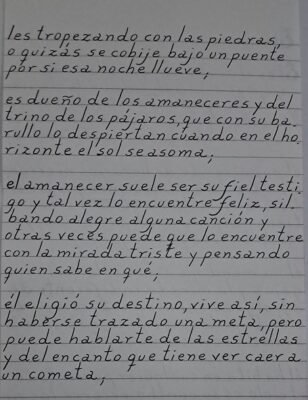 les tropezando con las piedras,
o quizás se cobije bajo un puente
por si esa noche llueve;
es dueño de los amaneceres y del
trino de los pájaros, que con su ba-
rullo lo despiertan cuando en el ho-
rizonte el sol se asoma;
el amanecer suele ser su fiel testi-
go y tal vez lo encuentre feliz, sil-
bando alegre alguna canción y
otras veces puede que lo encuentre
con la mirada triste y pensando
quien sabe en qué;
él eligió su destino, vive así, sin
haberse trazado una meta, pero
puede hablarte de las estrellas
y del encanto que tiene ver caer a
un cometa;